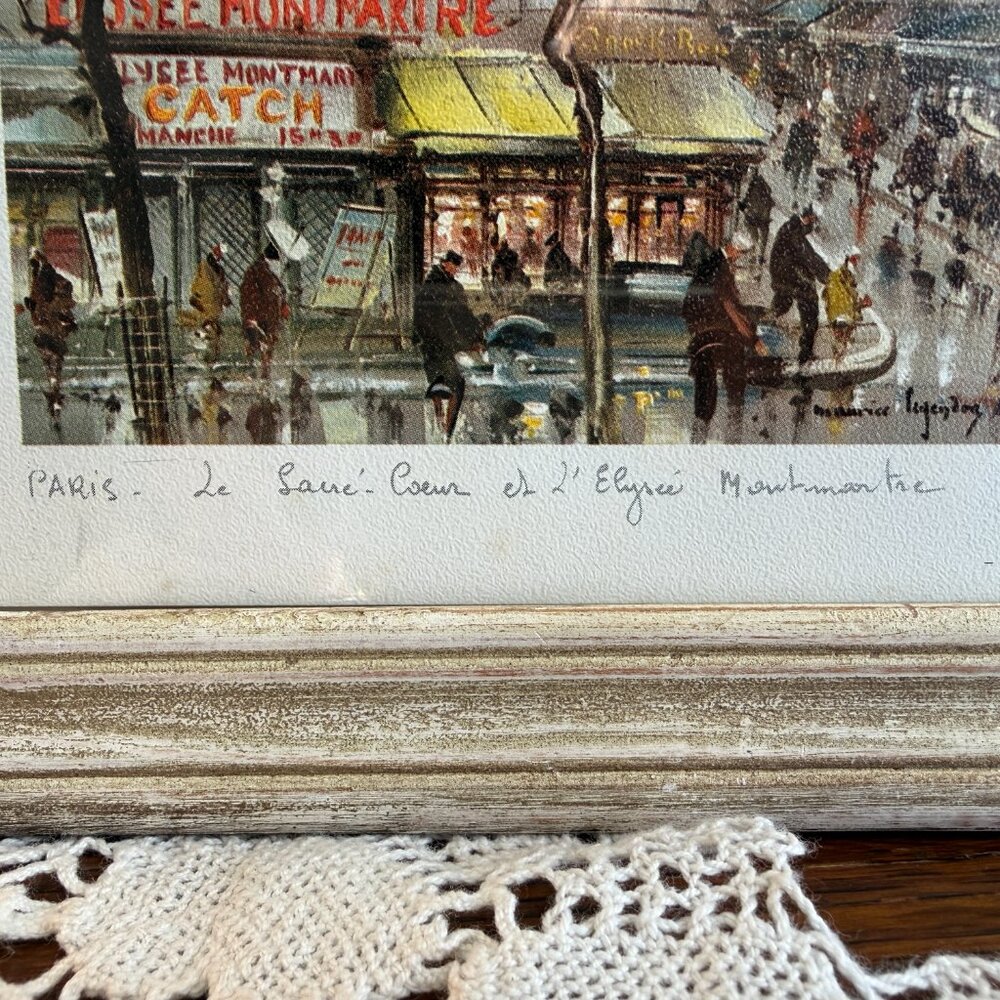 ELYSÉE MONTMARTRE
LYSEE MONTMART
CATCH
MANCHE 15H30
maurice legendre
PARIS - Le Sacré-Coeur et L'Elysée Montmartre